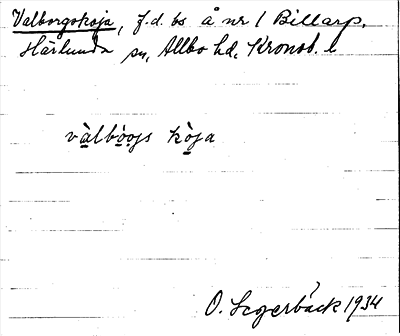 Valborgskoja, f.d. bs å nr 1 Billarp.
Härlunda sn, Allbo hd. Kronob. l
vàlbòrgs kòja
O. Segerbäck 1934